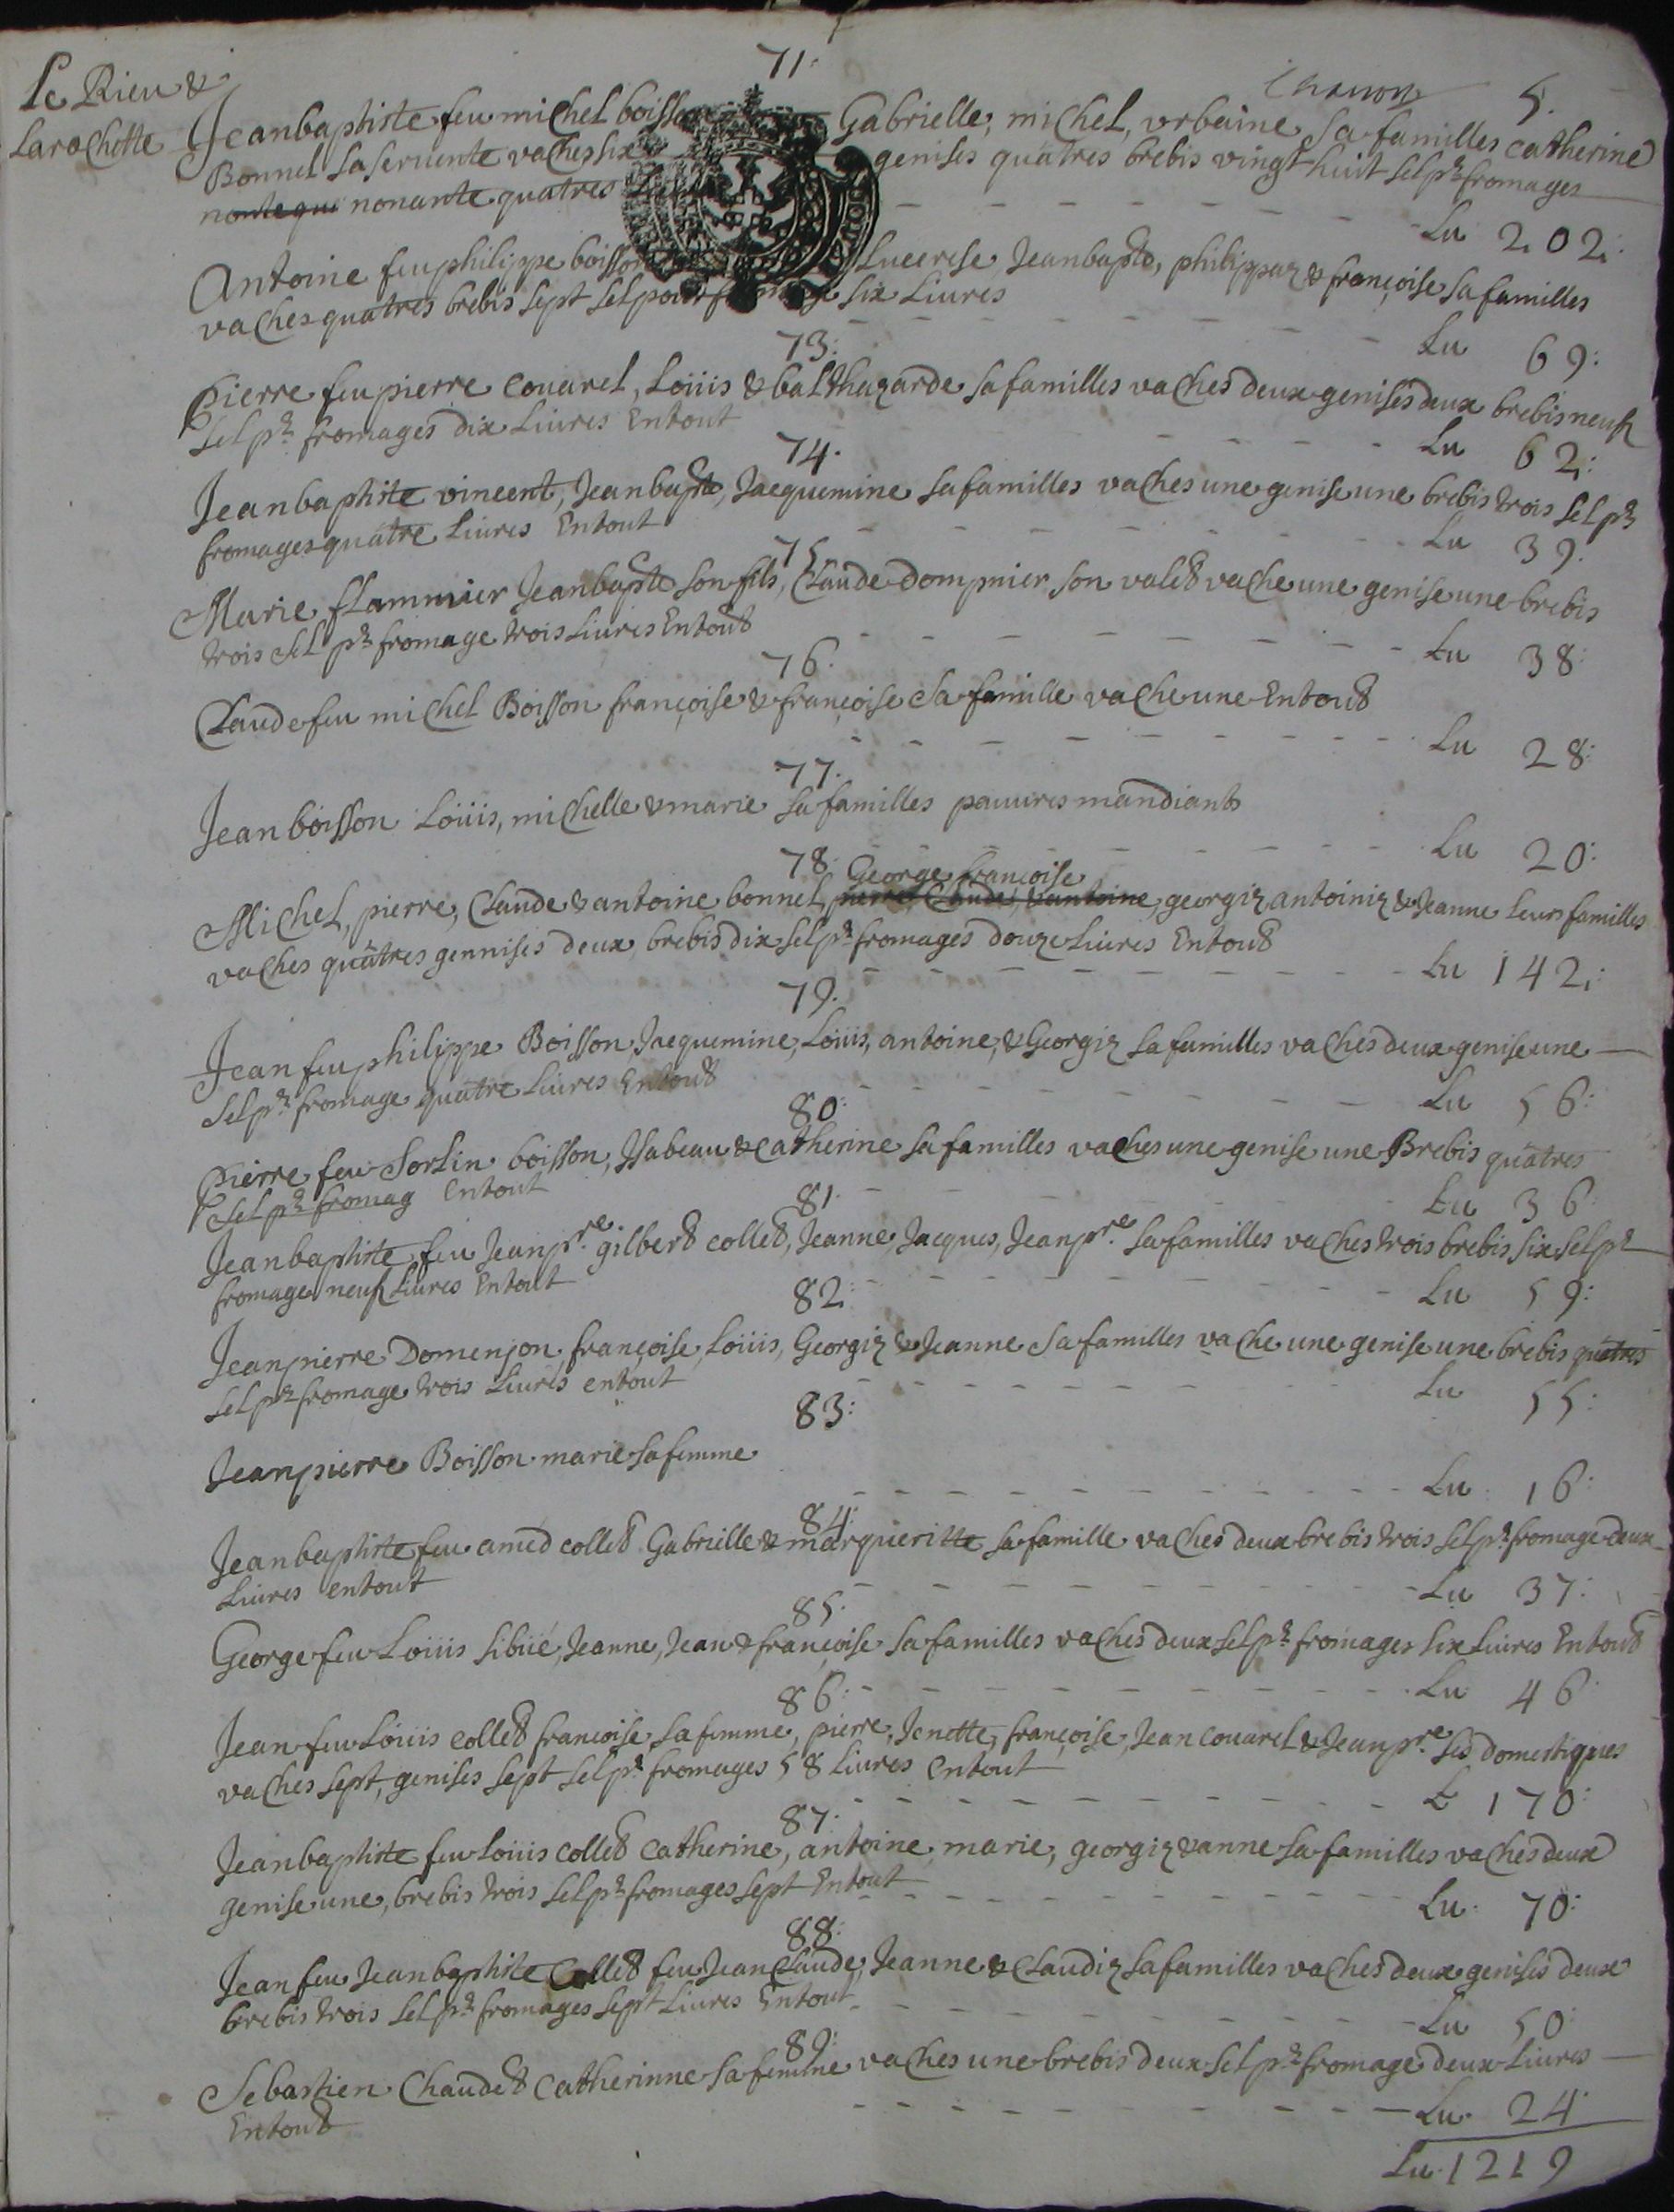 71.
Le Rieu &
Larochette
5.
Jeanbaptiste feu michel boisson Gabrielle, michel, vrbaine sa familles catherine
Bonnel sa seruente vaches six genises quatres brebis vingt huit sel pr fromages
nonante quatres
Lu 202:
Antoine feu philippe boisson Lucrese Jeanbapte, philippaz & françoise sa familles
vaches quatres brebis sept sel pour fromage six Liures
Lu 69:
73:
pierre feu pierre couarel, Loüis & balthazarde sa familles vaches deux genises deux brebis neuf
sel pr fromages dix Liures Entout
Lu 62:
74.
Jeanbaptiste vincent, Jeanbapte, Jacquemine sa familles vaches une genise une brebis trois sel pr
fromages quatre Liures Entout
Lu 39:
75
Marie flammier Jeanbapte son fils, Claude Dompnier son valet vache une genise une brebis
trois sel pr fromage trois Liures Entout
Lu 38:
76.
Claude feu michel Boisson françoise & françoise sa famille vache une Entout
Lu 28:
77.
Jean boisson Loüis, michelle & marie sa familles pauures mandiants
Lu 20:
78: George françoise
Michel, pierre, Claude & antoine bonnel, pierre, Claude, & antoine, georgiz antoiniz & Jeanne Leurs familles
vaches quâtres gennises deux brebis dix sel pr fromages douze Liures Entout
Lu 142:
79.
Jean feu philippe Boisson Jacquemine, Loüis, antoine, & Georgiz sa familles vaches deux genise une
sel pr fromage quatre Liures Entout
Lu 56:
80:
pierre feu Sorlin boisson, Isabeau & catherine sa familles vaches une genise une Brebis quâtres
sel pr fromag Entout
Lu 36:
81.
Jeanbaptiste feu Jeanpre. gilbert collet, Jeanne, Jacques, Jeanpre. sa familles vaches trois brebis six sel pr
fromage neuf Liures Entout
Lu 59:
82:
Jeanpierre Domenjon françoise, Loüis, Georgiz & Jeanne sa familles vache une genise une brebis quatres
sel pr fromage trois Liures entout
Lu 55:
83:
Jeanpierre Boisson marie sa femme
Lu 16:
84:
Jeanbaptiste feu amed collet Gabrielle & marqueritte sa famille vaches deux brebis trois sel pr fromage deux
Liures entout
Lu 37:
85:
George feu Loüis sibüé, Jeanne, Jean & françoise sa familles vaches deux sel pr fromages six Liures Entout
Lu 46
86:
Jean feu Loüis collet françoise sa femme, pierre, Jenette, françoise, Jean couarel & Jeanpre. ses domestiques
vaches sept, genises sept sel pr fromages 58 Liures entout
L 170:
87.
Jeanbaptiste feu Loüis collet catherine, antoine, marie, georgiz & anne sa familles vaches deux
genise une, brebis trois sel pr fromages sept Entout
Lu 70:
88:
Jean feu Jeanbaptiste Collet feu Jean Claude, Jeanne & Claudiz sa familles vaches deux genises deux
brebis trois sel pr fromages sept Liures Entout
Lu 50:
89:
Sebastien Chaudet catherinne sa femme vaches une brebis deux sel pr fromage deux Liures
Entout
Lu 24
Lu 1219